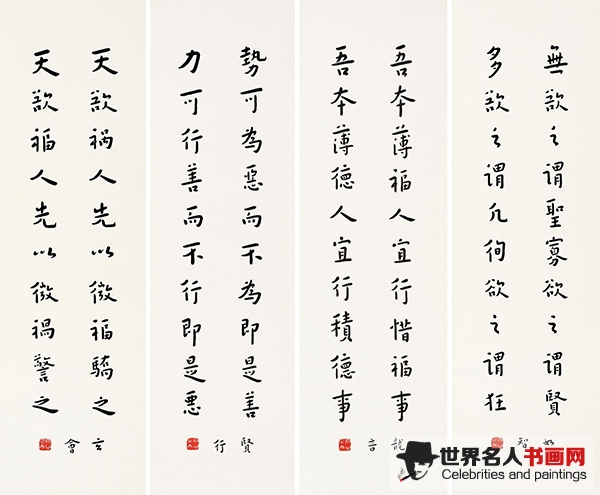 無欲之謂聖寡欲之謂賢
多欲之謂凡徇欲之謂狂
如智
吾本薄福人宜行惜福事
吾本薄德人宜行積德事
龍音
勢可為惡而不為即是善
力可行善而不行即是悪
賢行
天欲禍人先以微福驕之
天欲福人先以微禍警之
玄會
世界名人书画网
Celebrities and paintings